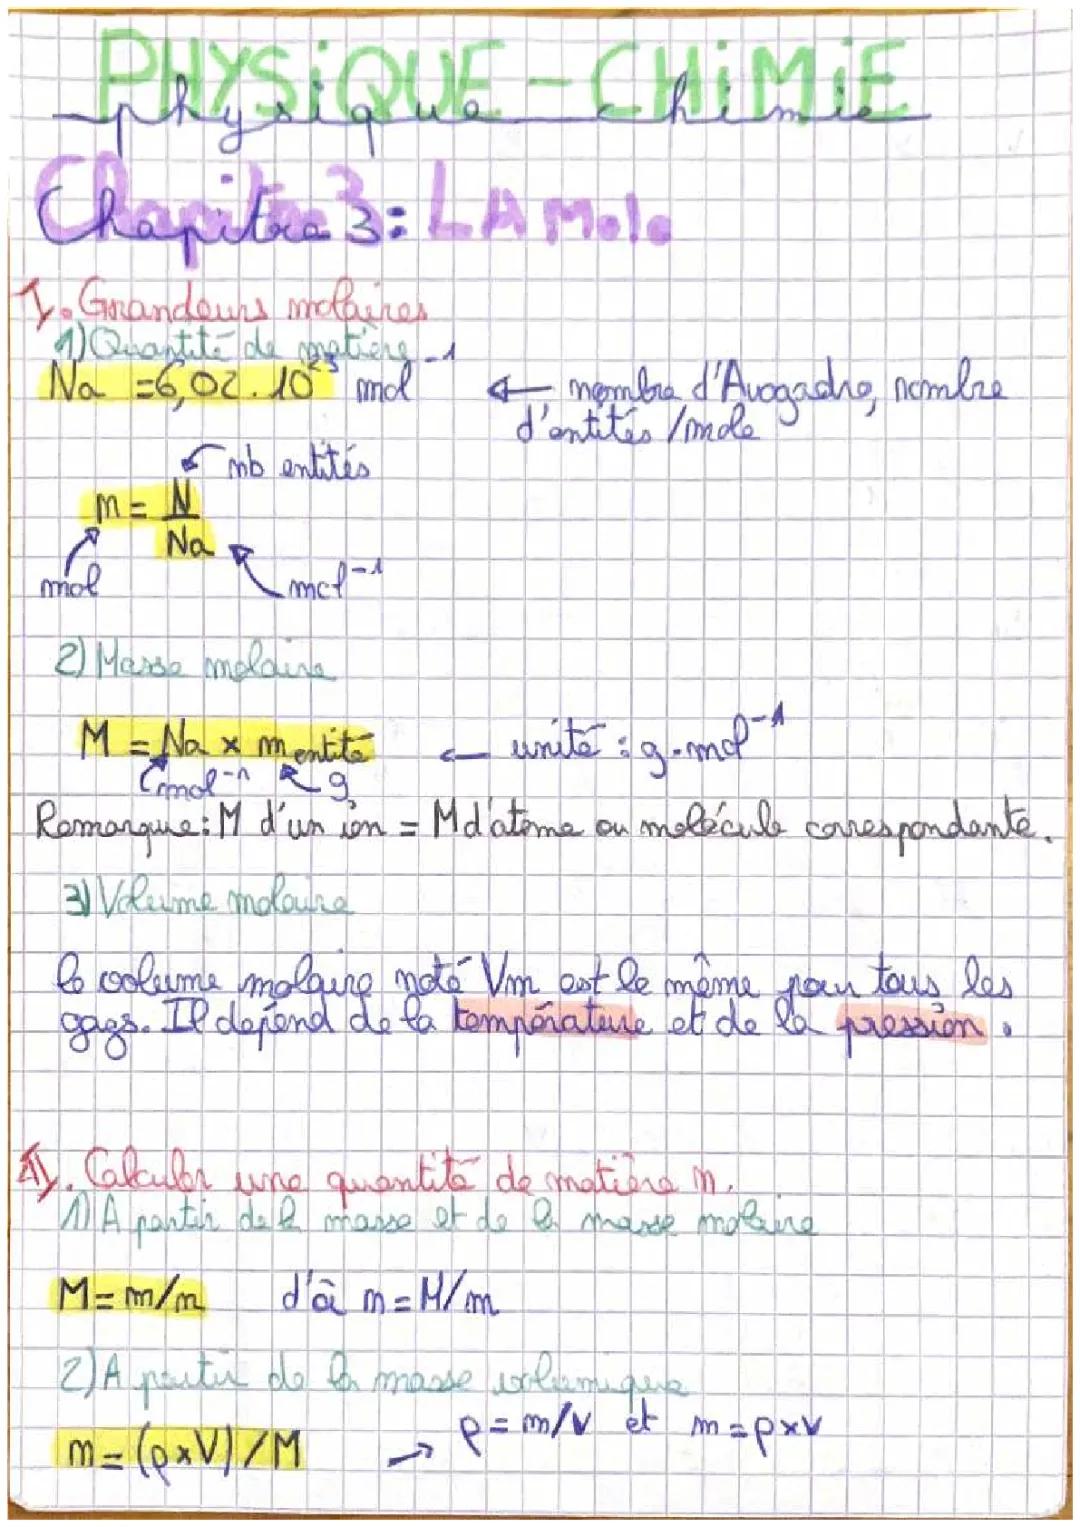 PHYSiQUE-CHiMiE
physique chimie
Chapitre 3: LA Mole
I. Grandeurs molaires
1) Quantité de matière
Na = 6,02.10²³ mol⁻¹ ← nombre d'Avogadro, nombre
d'entités /mole
nb entités
n = N
Na
mol mol⁻¹
2) Masse molaire
M = Na x m entité ← unité : g.mol⁻¹
mol⁻¹ g
Remarque: M d'un ion = M d'atome ou molécule correspondante.
3) Volume molaire
le volume molaire noté Vm est le même pour tous les
gazs. Il dépend de la température et de la pression.
II. Calculer une quantité de matière n.
1) A partir de la masse et de la masse molaire
M = m/n d'où n = M/m
2) A partir de la masse volumique
n = (ρxV)/M → ρ = m/V et m = ρxV